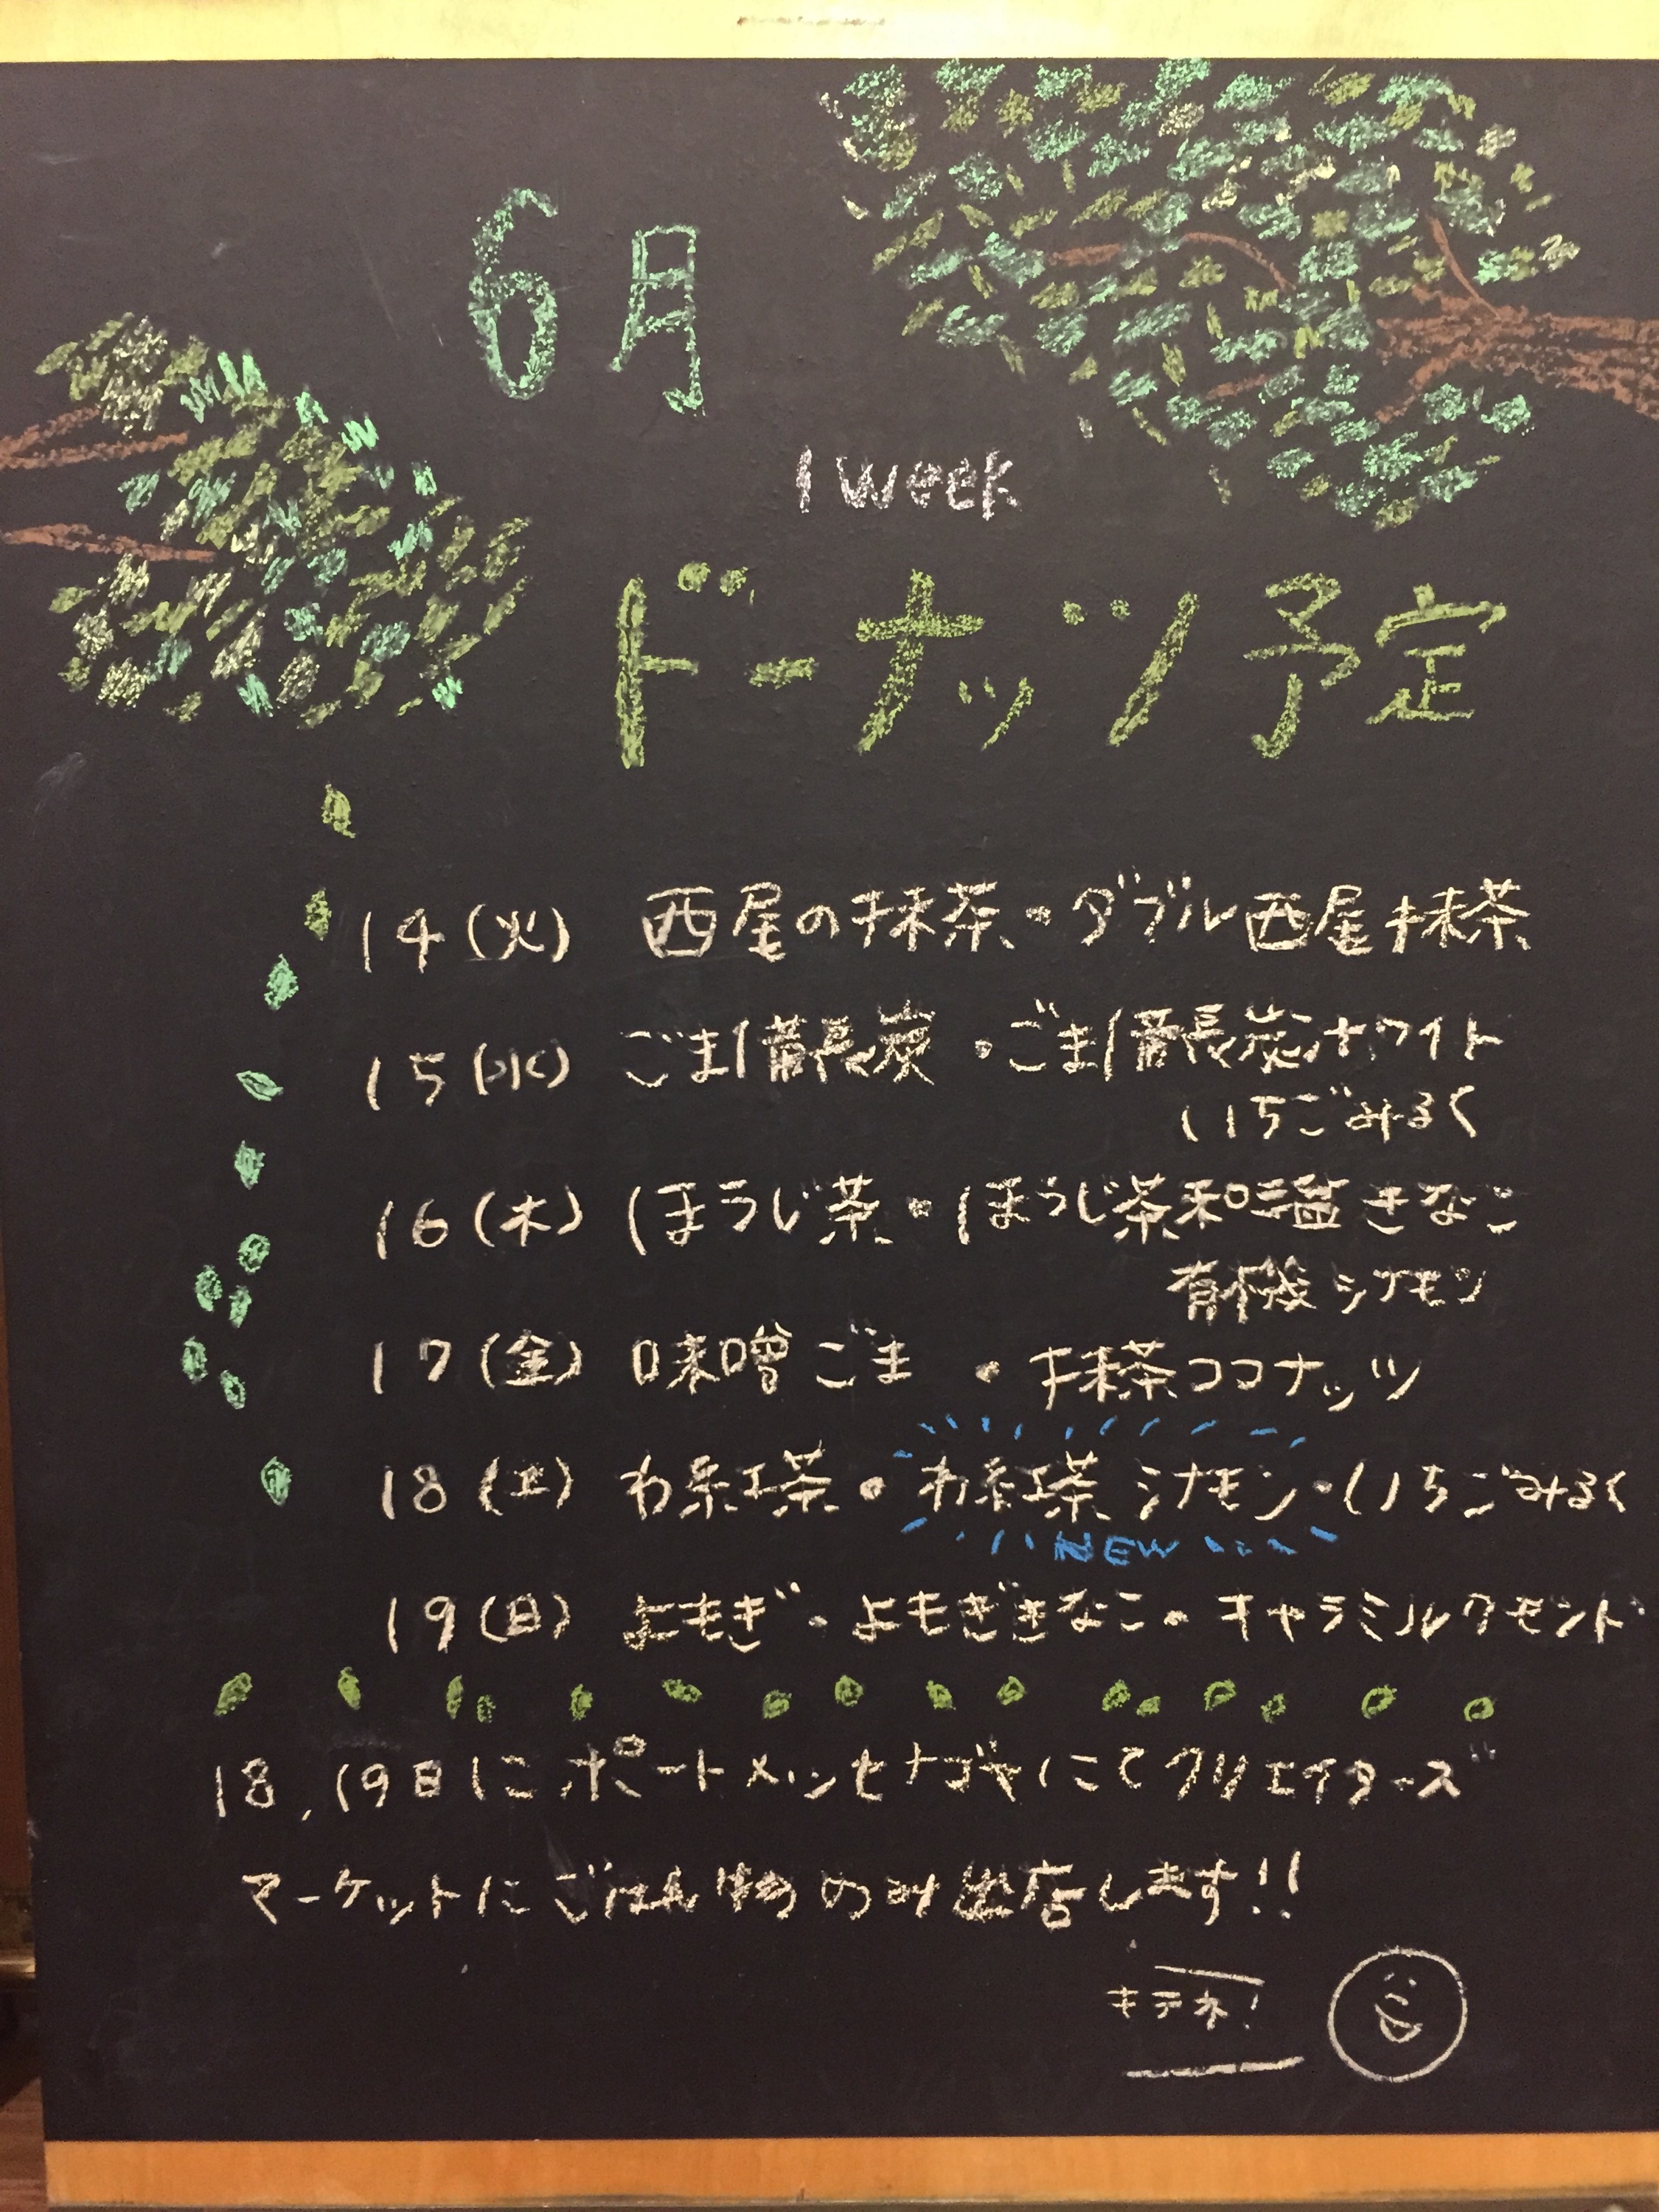 6月
1 week
ドーナッツ予定
14(火) 西尾の抹茶・ダブル西尾抹茶
15(水) ごま備長炭・ごま備長炭ホワイト
いちごみるく
16(木) ほうじ茶・ほうじ茶和三盆きなこ
有機シナモン
17(金) 味噌ごま・抹茶ココナッツ
18(土) わ紅茶・わ紅茶シナモン・いちごみるく
NEW
19(日) よもぎ・よもぎきなこ・キャラミルクモンド
18,19日にポートメッセナゴヤにてクリエイターズ
マーケットにごはん物のみ出店します!!
キテネ!